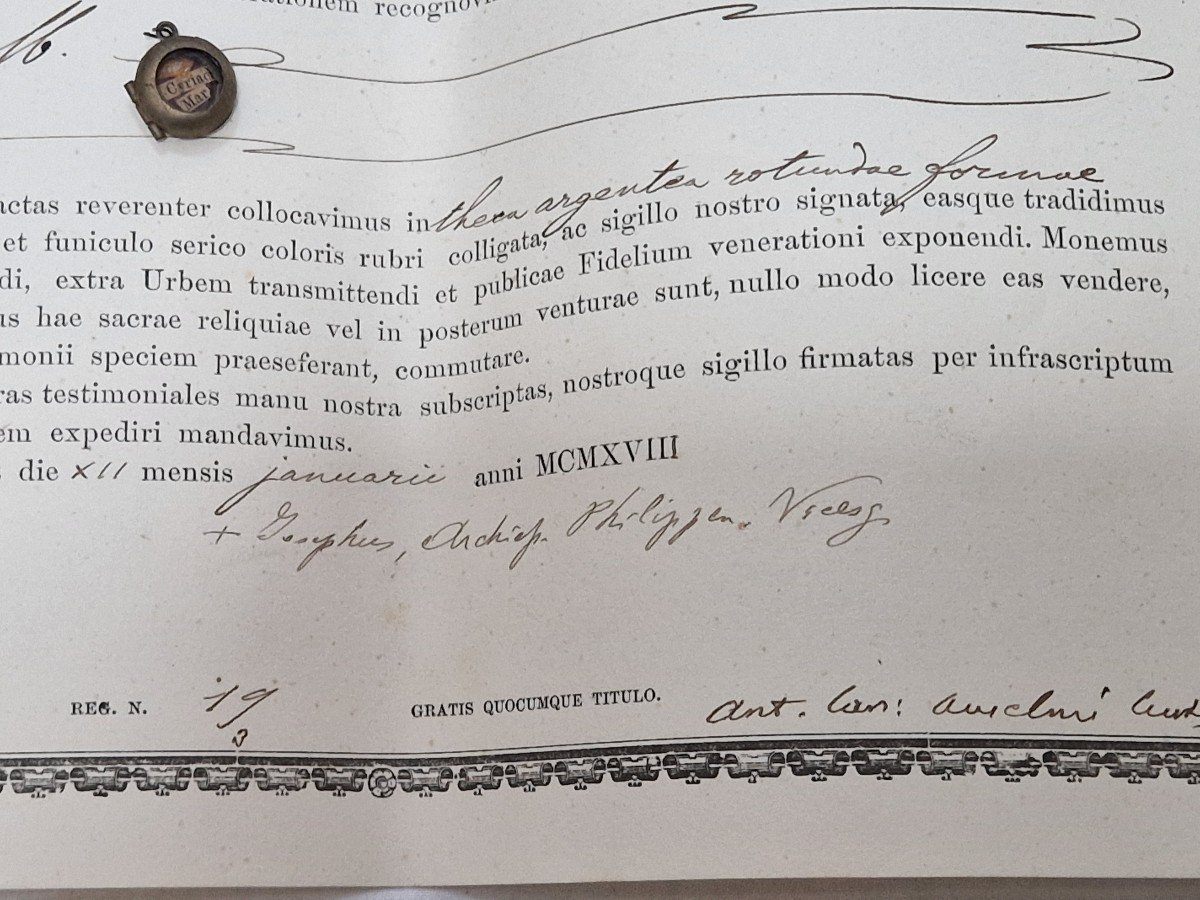 recognov
b.
Cyriaci
Mar
theca argentea rotundae formae
actas reverenter collocavimus in
et funiculo serico coloris rubri colligata, ac sigillo nostro signata, easque tradidimus
di, extra Urbem transmittendi et publicae Fidelium venerationi exponendi. Monemus
us hae sacrae reliquiae vel in posterum venturae sunt, nullo modo licere eas vendere,
monii speciem praeseferant, commutare.
ras testimoniales manu nostra subscriptas, nostroque sigillo firmatas per infrascriptum
em expediri mandavimus.
die XII mensis januarii anni MCMXVIII
+ Josephus, Archiep. Philippen. Vicesg.
REG. N. 19
GRATIS QUOCUMQUE TITULO.
Ant. Can: Anselmi